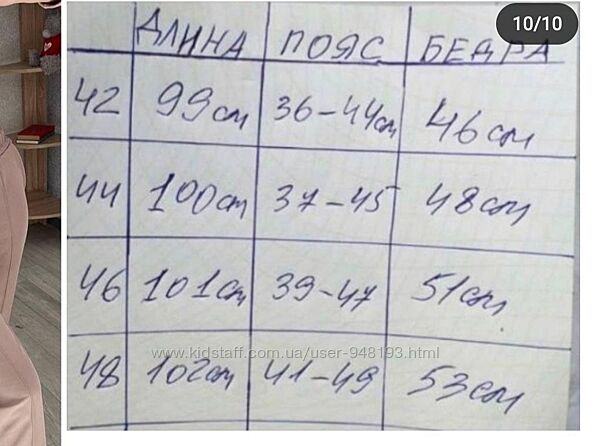 10/10
ДЛИНА ПОЯС БЕДРА
42 99см 36-44см 46см
44 100см 37-45 48см
46 101см 39-47 51см
www.kidstaff.com.ua/user-948193.html
48 102см 41-49 53см